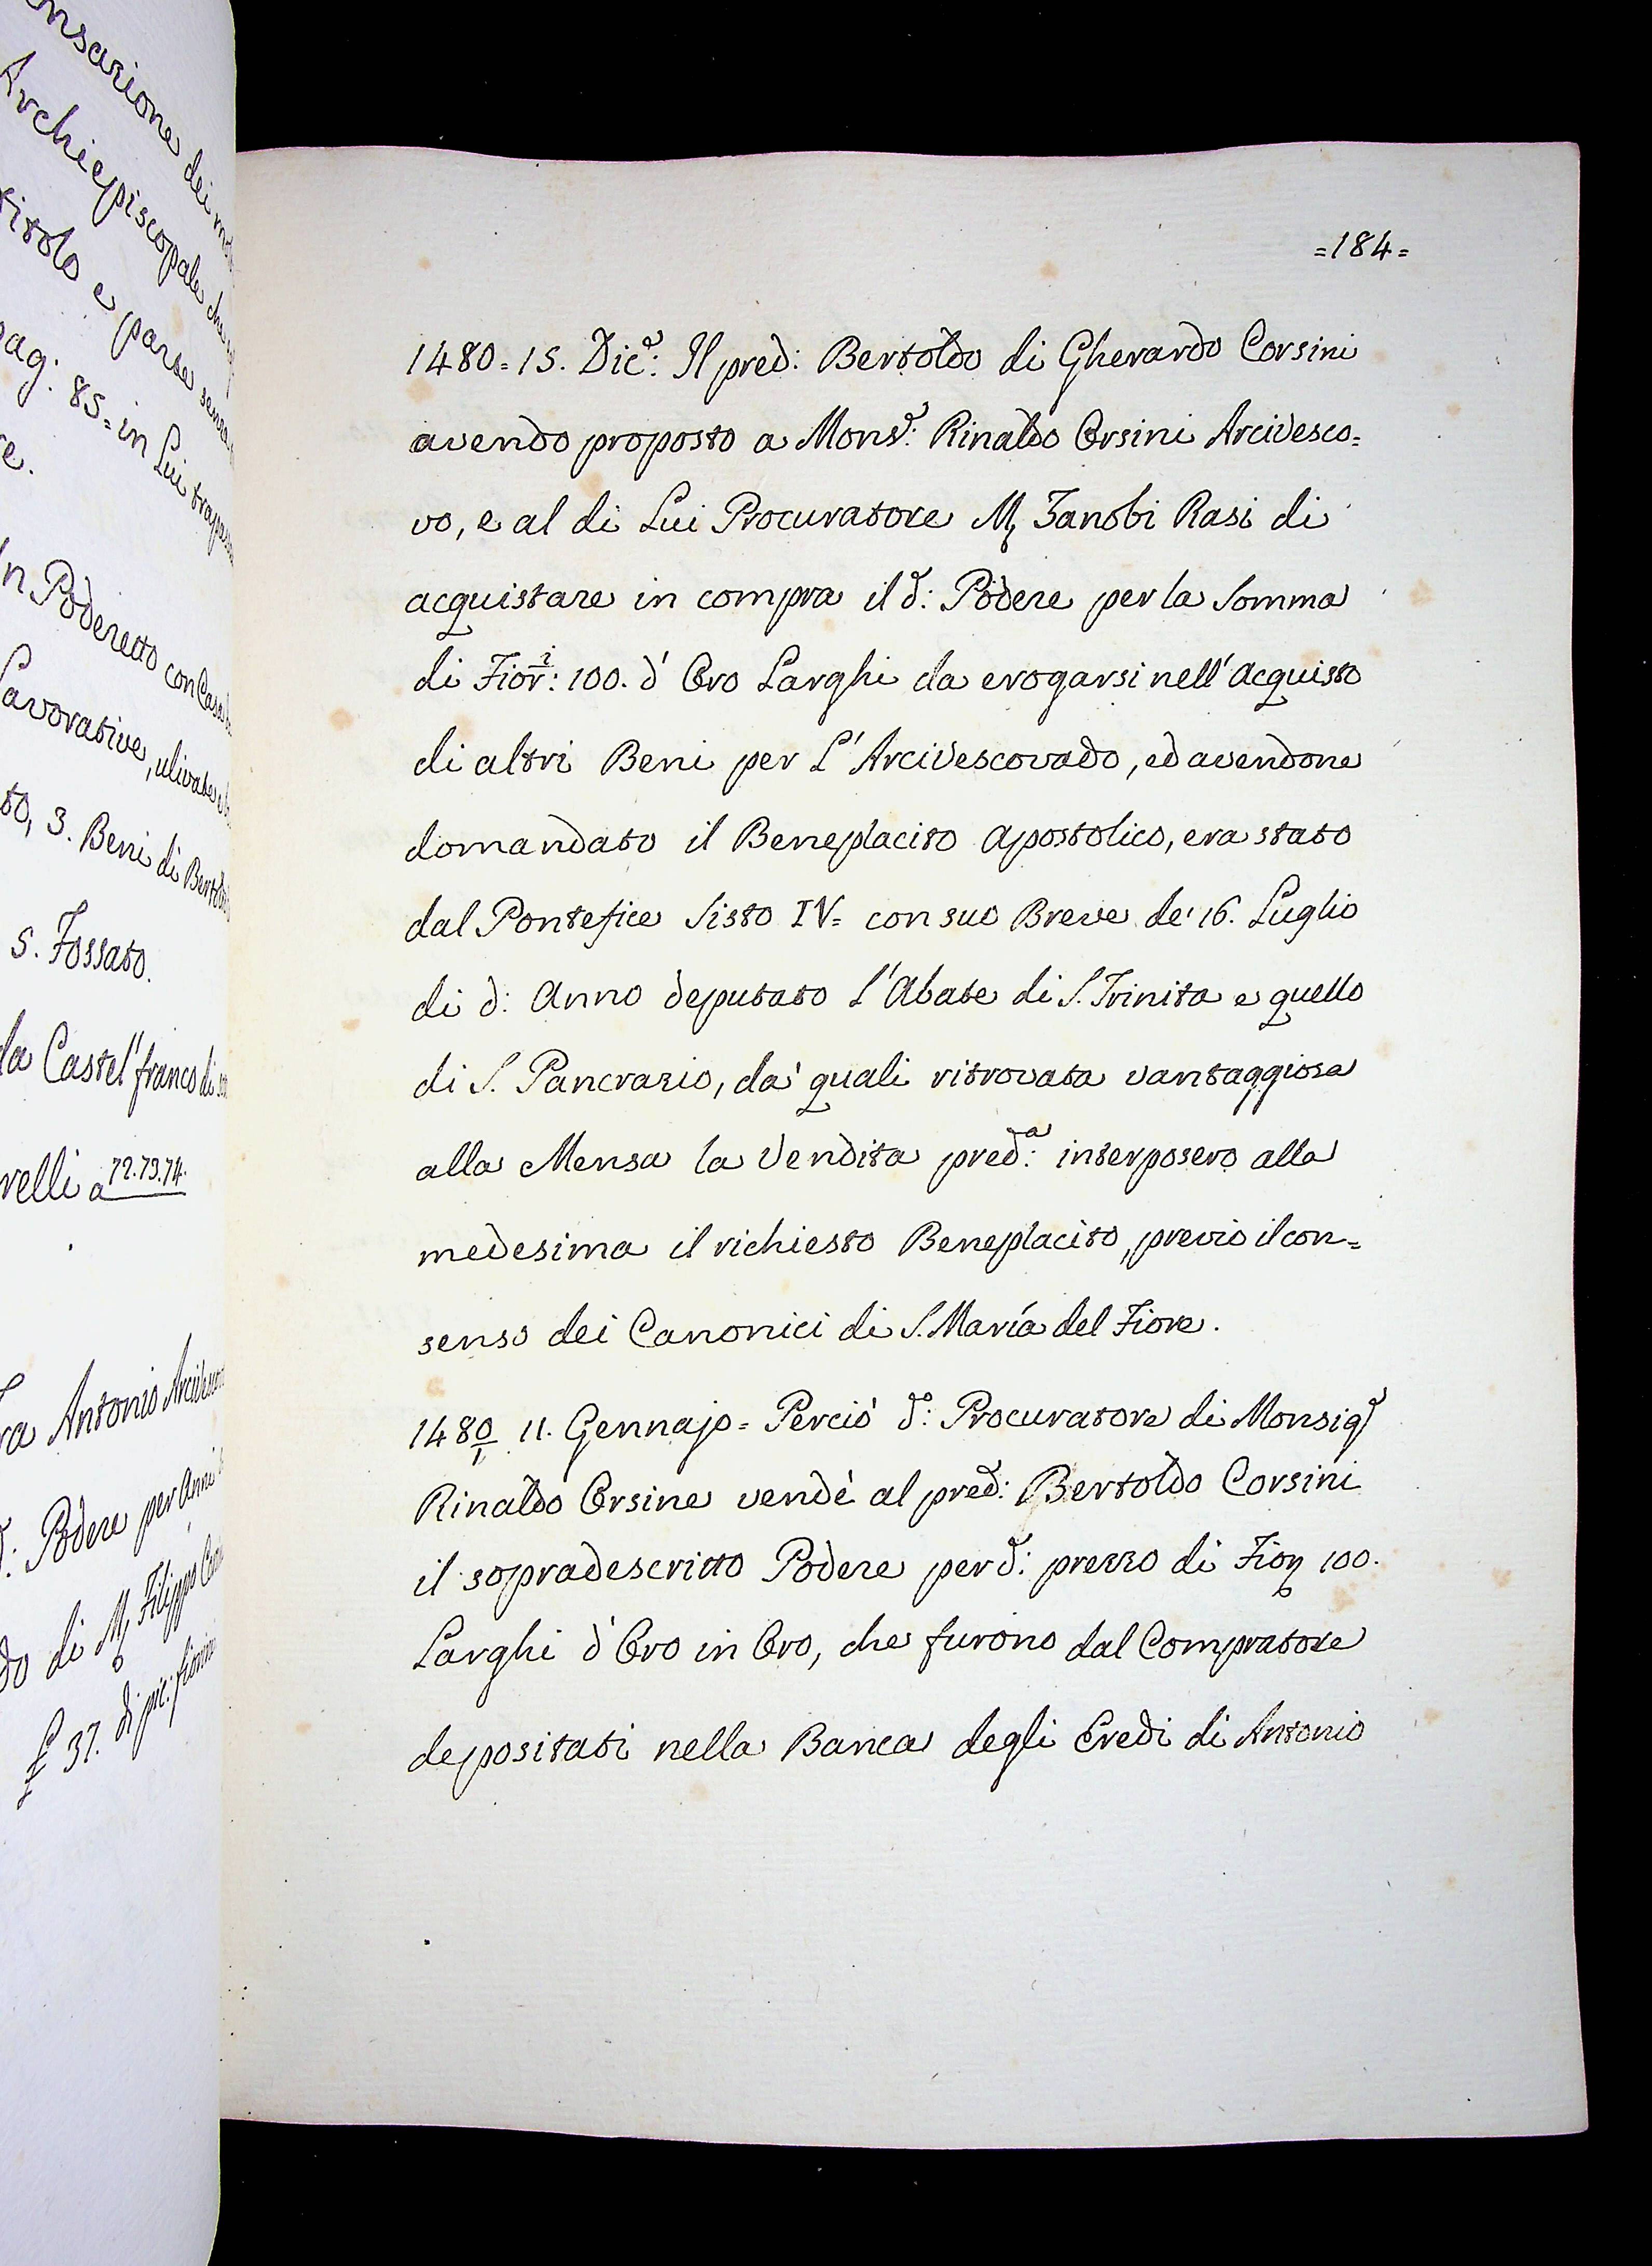 nsazione dei
Archiepiscopale che
titolo e parte
pag: 85= in Lui
re.
n Poderetto con Casa
Lavorative, ulivate
to, 3. Beni di
5. Fossato.
la Castel'franco di
relli a 72.73.74.
ra Antonio
d: Podere per Anni
do di M, Filippo
£ 37. di pic:
=184=
1480=15. Dic.e: Il pred: Bertoldo di Gherardo Corsini
avendo proposto a Mons.r: Rinaldo Orsini Arcivesco=
vo, e al di Lui Procuratore M, Zanobi Rasi di
acquistare in compra il d.o: Podere per la Somma
di Fior.i: 100. d'Oro Larghi da erogarsi nell'Acquisto
di altri Beni per L'Arcivescovado, ed avendone
domandato il Beneplacito Apostolico, era stato
dal Pontefice Sisto IV= con suo Breve de' 16. Luglio
di d: Anno deputato l'Abate di S. Trinita e quello
di S. Pancrazio, da' quali ritrovata vantaggiosa
alla Mensa la Vendita pred.a: interposero alla
medesima il richiesto Beneplacito, previo il con=
senso dei Canonici di S. María del Fiore.
1480/1 11. Gennajo= Perciò d.o: Procuratore di Monsig.r
Rinaldo Orsine vendè al pred.o: Bertoldo Corsini
il sopradescritto Podere per d.o: prezzo di Fior 100.
Larghi d'Oro in Oro, che furono dal Compratore
depositati nella Banca degli Eredi di Antonio